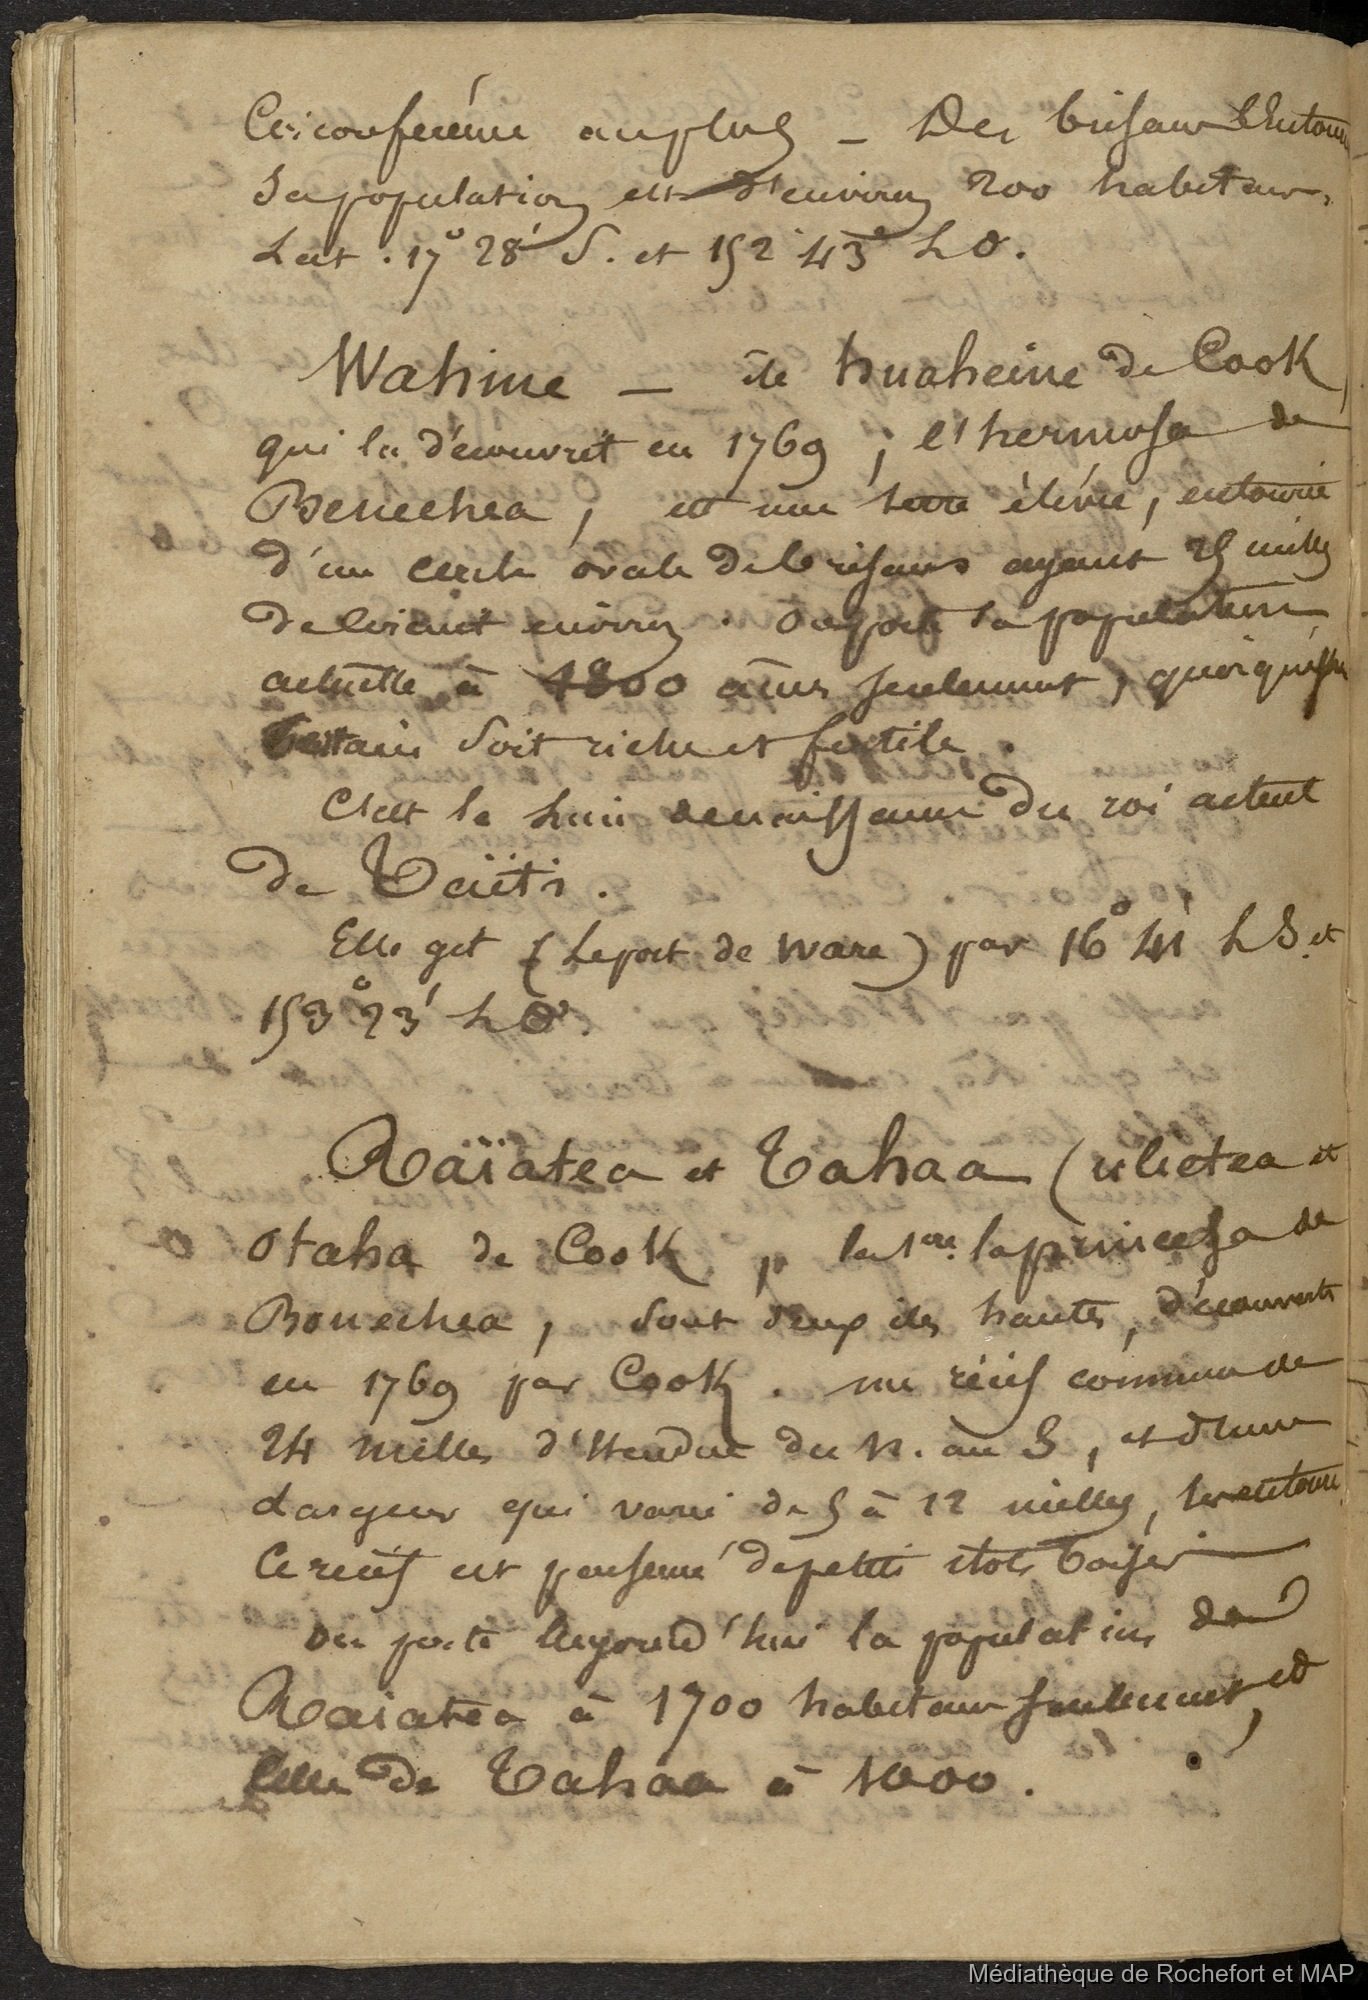 Circonférence au plus _ Des brisans l'entoure
Sa population est d'environ 200 habitans,
Lat. 17° 28' S. et 152° 43' L O.
Wahine — île huaheine de Cook
qui la découvrit en 1769, l'hermosa de
Benechea, est une terre élévée, entourée
d'un cercle ovale de brisans ayant 25 milles
de circuit environ. On porte sa population
actuelle à 4800 âmes seulement, quoique son
terrain soit riche et fertile.
C'est le lieu de naissance du roi actuel
de Taïti.
Elle git (le port de Ware) par 16° 41' L S. et
153° 23' L O.
Raïatea et Tahaa (ulietea et
Otaha de Cook, la 1ere la princesa de
Bonechea, sont deux iles hautes, découvertes
en 1769 par Cook. un récif commun de
24 milles d'étendue du N. au S, et d'une
largeur qui varie de 5 à 12 milles, les entoure,
Ce récif est parsemé de petits ilots boisés
On porte aujourd'hui la population de
Raiatea à 1700 habitans seulement, et
celle de Tahaa à 1000.
Médiathèque de Rochefort et MAP